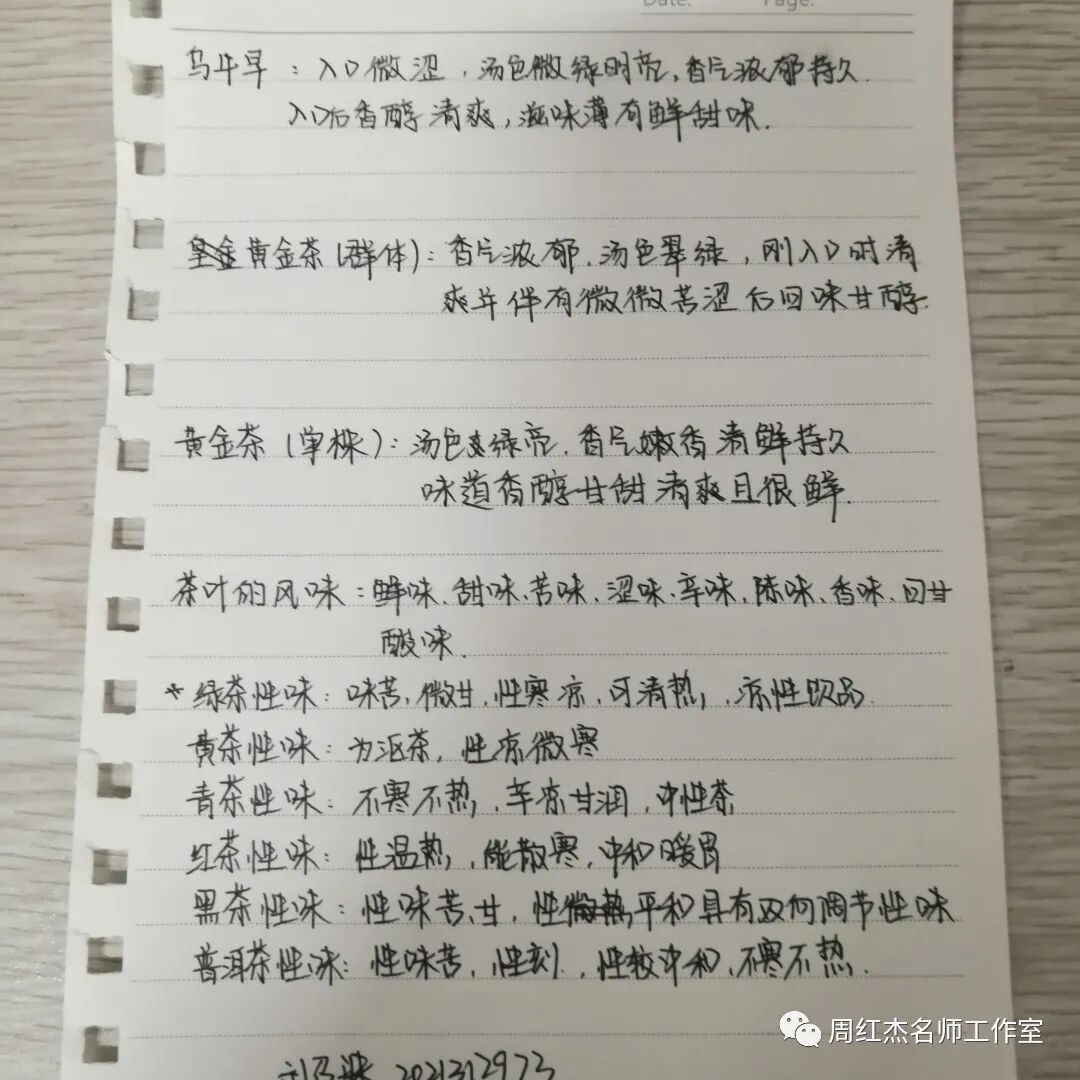 Date: Page:
乌牛早：入口微涩，汤色微绿明亮，香气浓郁持久.
入口后香醇清爽，滋味薄有鲜甜味.
黄金茶(群体)：香气浓郁.汤色翠绿，刚入口时清
爽并伴有微微苦涩后回味甘醇.
黄金茶(单株)：汤色绿亮.香气嫩香清鲜持久
味道香醇甘甜清爽且很鲜.
茶叶的风味：鲜味、甜味、苦味、涩味、辛味、陈味、香味、回甘
酸味.
*绿茶性味：味苦，微甘，性寒凉，可清热，凉性饮品.
黄茶性味：为沤茶，性凉微寒
青茶性味：不寒不热，辛凉甘润，中性茶
红茶性味：性温热，能散寒，中和暖胃
黑茶性味：性味苦、甘，性平和具有双向调节性味
普洱茶性味：性味苦，性刻，性较中和，不寒不热.
2021312973
周红杰名师工作室